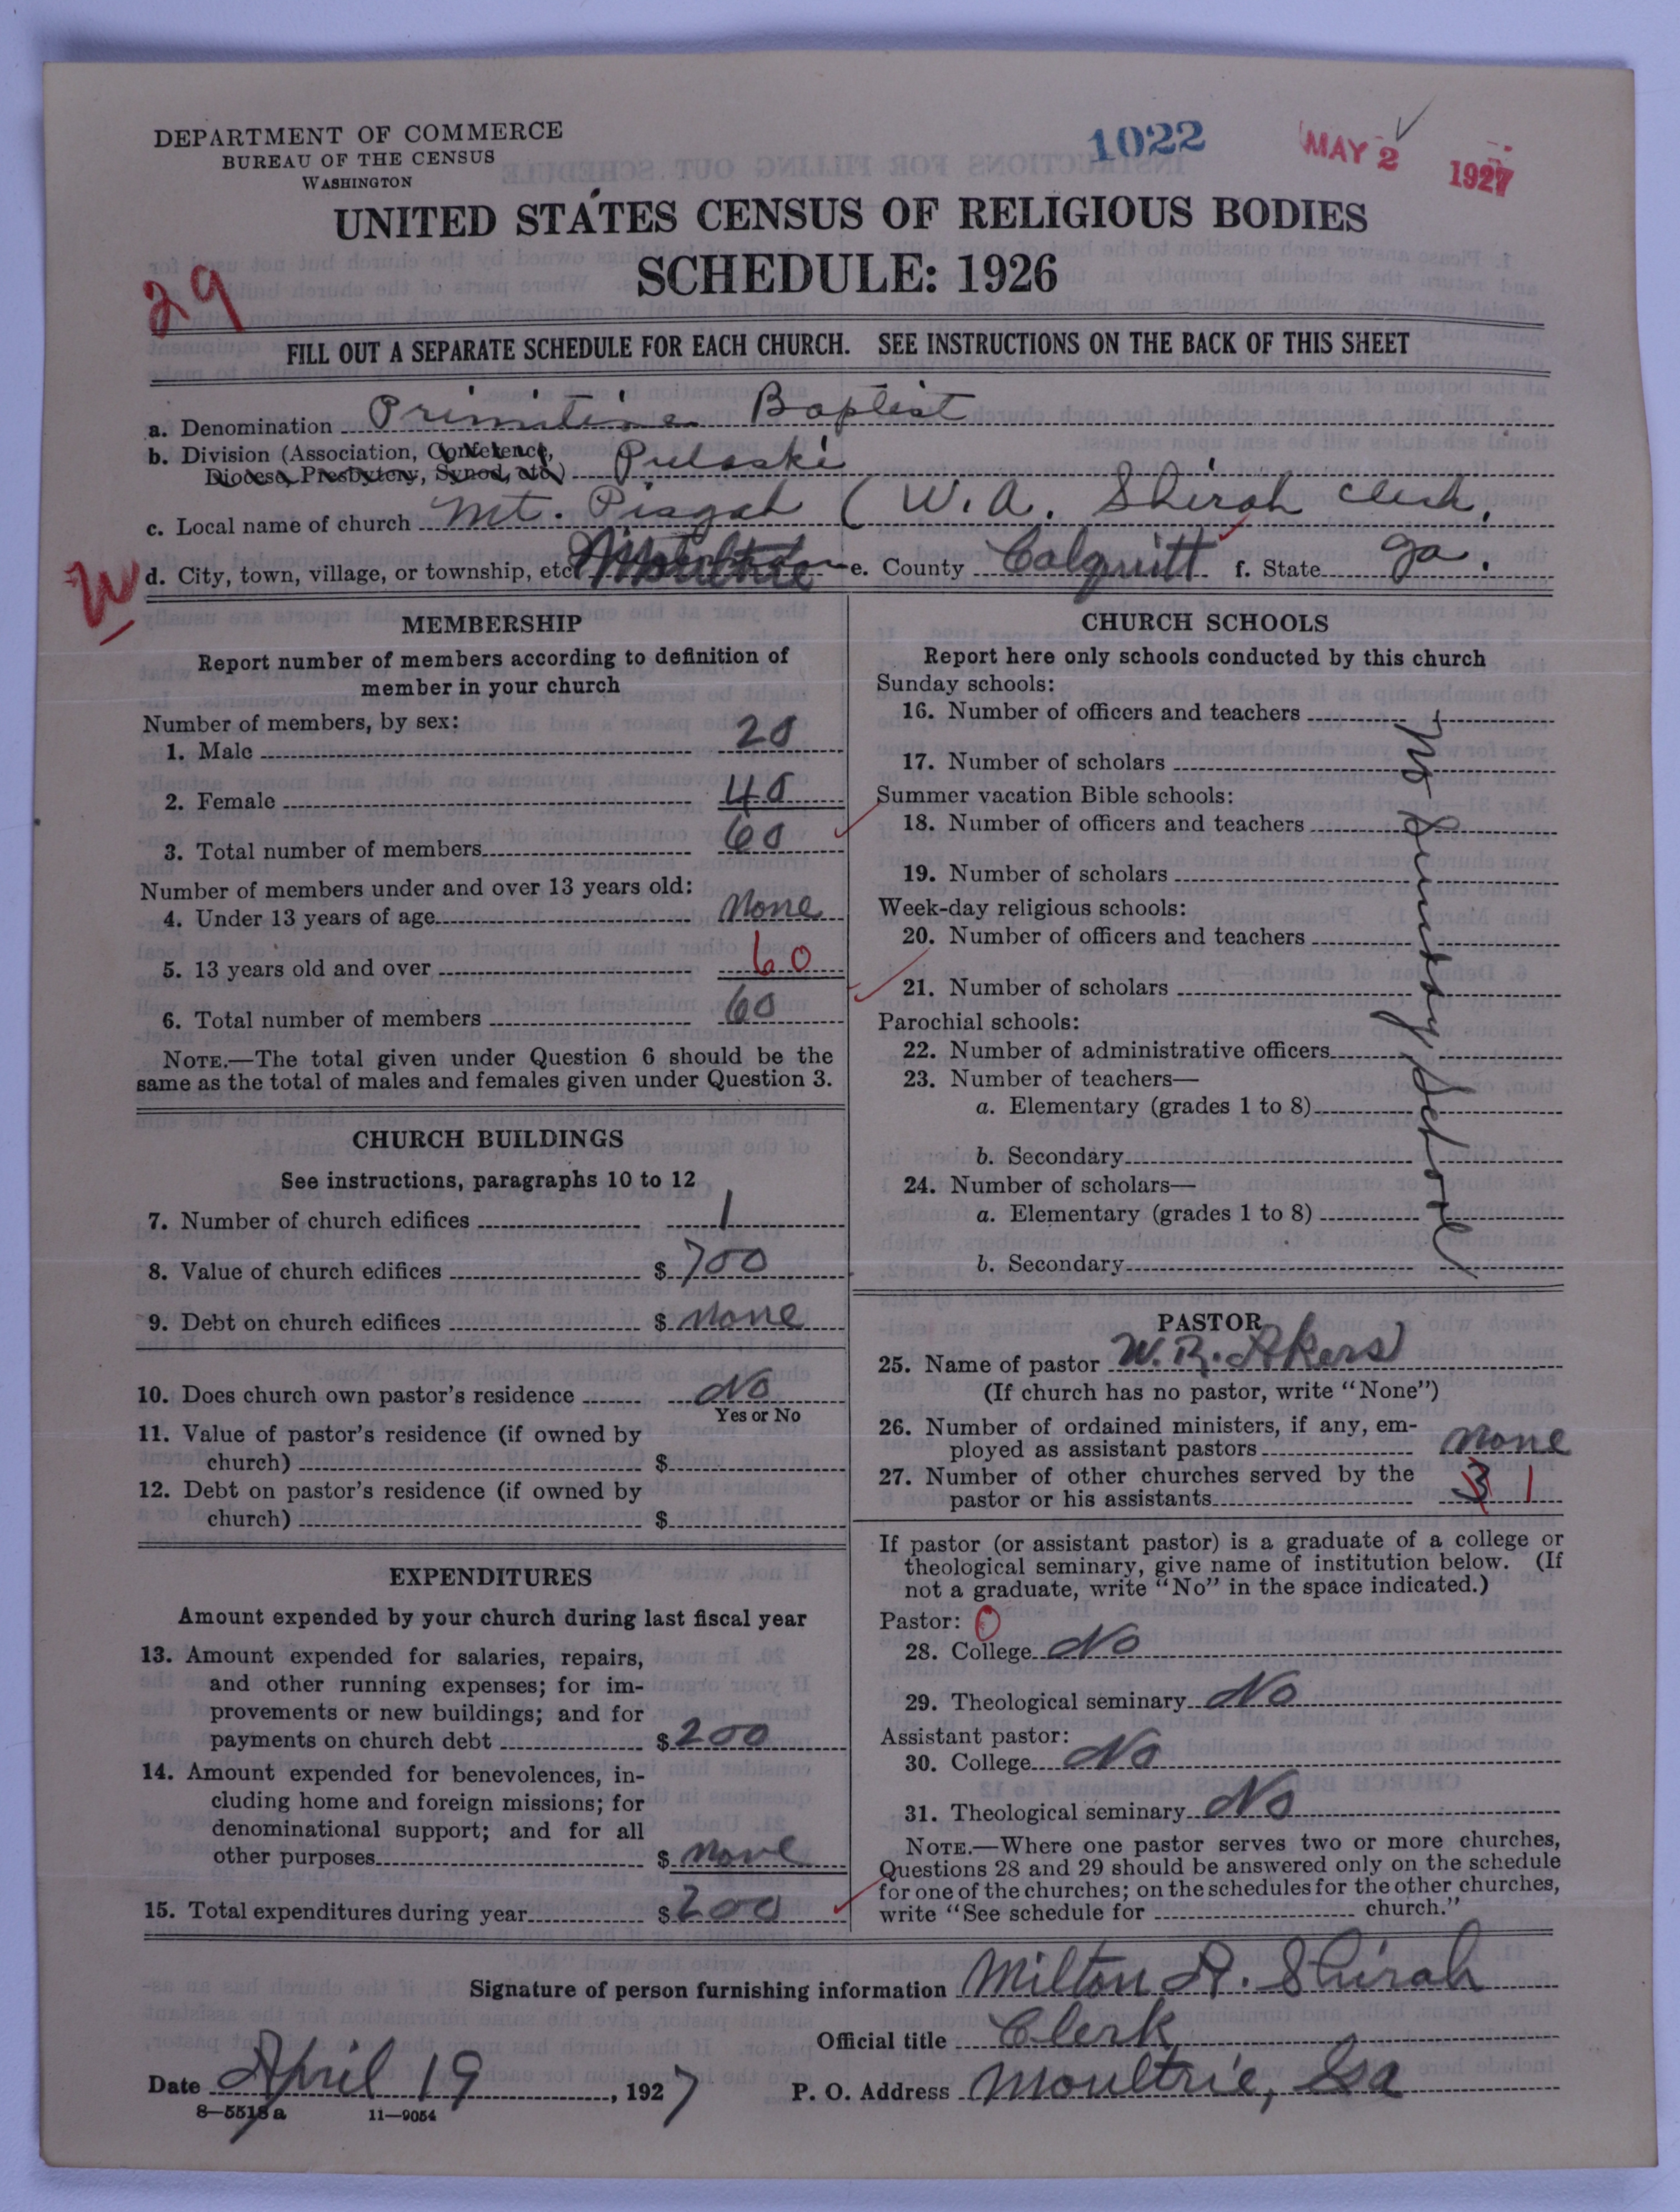 DEPARTMENT OF COMMERCE
BUREAU OF THE CENSUS
WASHINGTON
1022
MAY 2 1927
UNITED STATES CENSUS OF RELIGIOUS BODIES
SCHEDULE: 1926
29
FILL OUT A SEPARATE SCHEDULE FOR EACH CHURCH. SEE INSTRUCTIONS ON THE BACK OF THIS SHEET
a. Denomination Primitive Baptist
b. Division (Association, Conference,
Diocese, Presbytery, Synod, etc.) Pulaski
c. Local name of church Mt. Pisgah (W.A. Shirah Clerk.
W
d. City, town, village, or township, etc. Moultrie e. County Colquitt f. State Ga.
MEMBERSHIP
Report number of members according to definition of
member in your church
Number of members, by sex:
1. Male 20
2. Female 40
3. Total number of members 60
Number of members under and over 13 years old:
4. Under 13 years of age None
5. 13 years old and over 60
6. Total number of members 60
NOTE.—The total given under Question 6 should be the
same as the total of males and females given under Question 3.
CHURCH BUILDINGS
See instructions, paragraphs 10 to 12
7. Number of church edifices 1
8. Value of church edifices $ 700
9. Debt on church edifices $ None
10. Does church own pastor's residence No
Yes or No
11. Value of pastor's residence (if owned by
church) $
12. Debt on pastor's residence (if owned by
church) $
EXPENDITURES
Amount expended by your church during last fiscal year
13. Amount expended for salaries, repairs,
and other running expenses; for im-
provements or new buildings; and for
payments on church debt $ 200
14. Amount expended for benevolences, in-
cluding home and foreign missions; for
denominational support; and for all
other purposes $ None
15. Total expenditures during year $ 200
CHURCH SCHOOLS
Report here only schools conducted by this church
Sunday schools:
16. Number of officers and teachers
17. Number of scholars
Summer vacation Bible schools:
18. Number of officers and teachers
19. Number of scholars
Week-day religious schools:
20. Number of officers and teachers
21. Number of scholars
Parochial schools:
22. Number of administrative officers
23. Number of teachers—
a. Elementary (grades 1 to 8)
b. Secondary
24. Number of scholars—
a. Elementary (grades 1 to 8)
b. Secondary
No Sunday School
PASTOR
25. Name of pastor W. R. Akers
(If church has no pastor, write "None")
26. Number of ordained ministers, if any, em-
ployed as assistant pastors None
27. Number of other churches served by the
pastor or his assistants 3 1
If pastor (or assistant pastor) is a graduate of a college or
theological seminary, give name of institution below. (If
not a graduate, write "No" in the space indicated.)
Pastor: 0
28. College No
29. Theological seminary No
Assistant pastor:
30. College No
31. Theological seminary No
NOTE.—Where one pastor serves two or more churches,
Questions 28 and 29 should be answered only on the schedule
for one of the churches; on the schedules for the other churches,
write "See schedule for church."
Signature of person furnishing information Milton A. Shirah
Official title Clerk
Date April 19, 1927 P. O. Address Moultrie, Ga
8—5518 a 11—9054